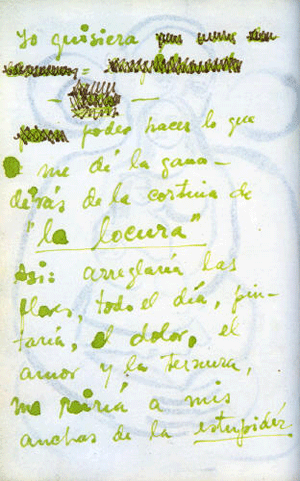 Yo quisiera
poder hacer lo que
me dé la gana—
detrás de la cortina de
"la locura"
Asi: arreglaría las
flores, todo el día, pin-
taría, el dolor, el
amor y la ternura,
me reiría a mis
anchas de la estupidez